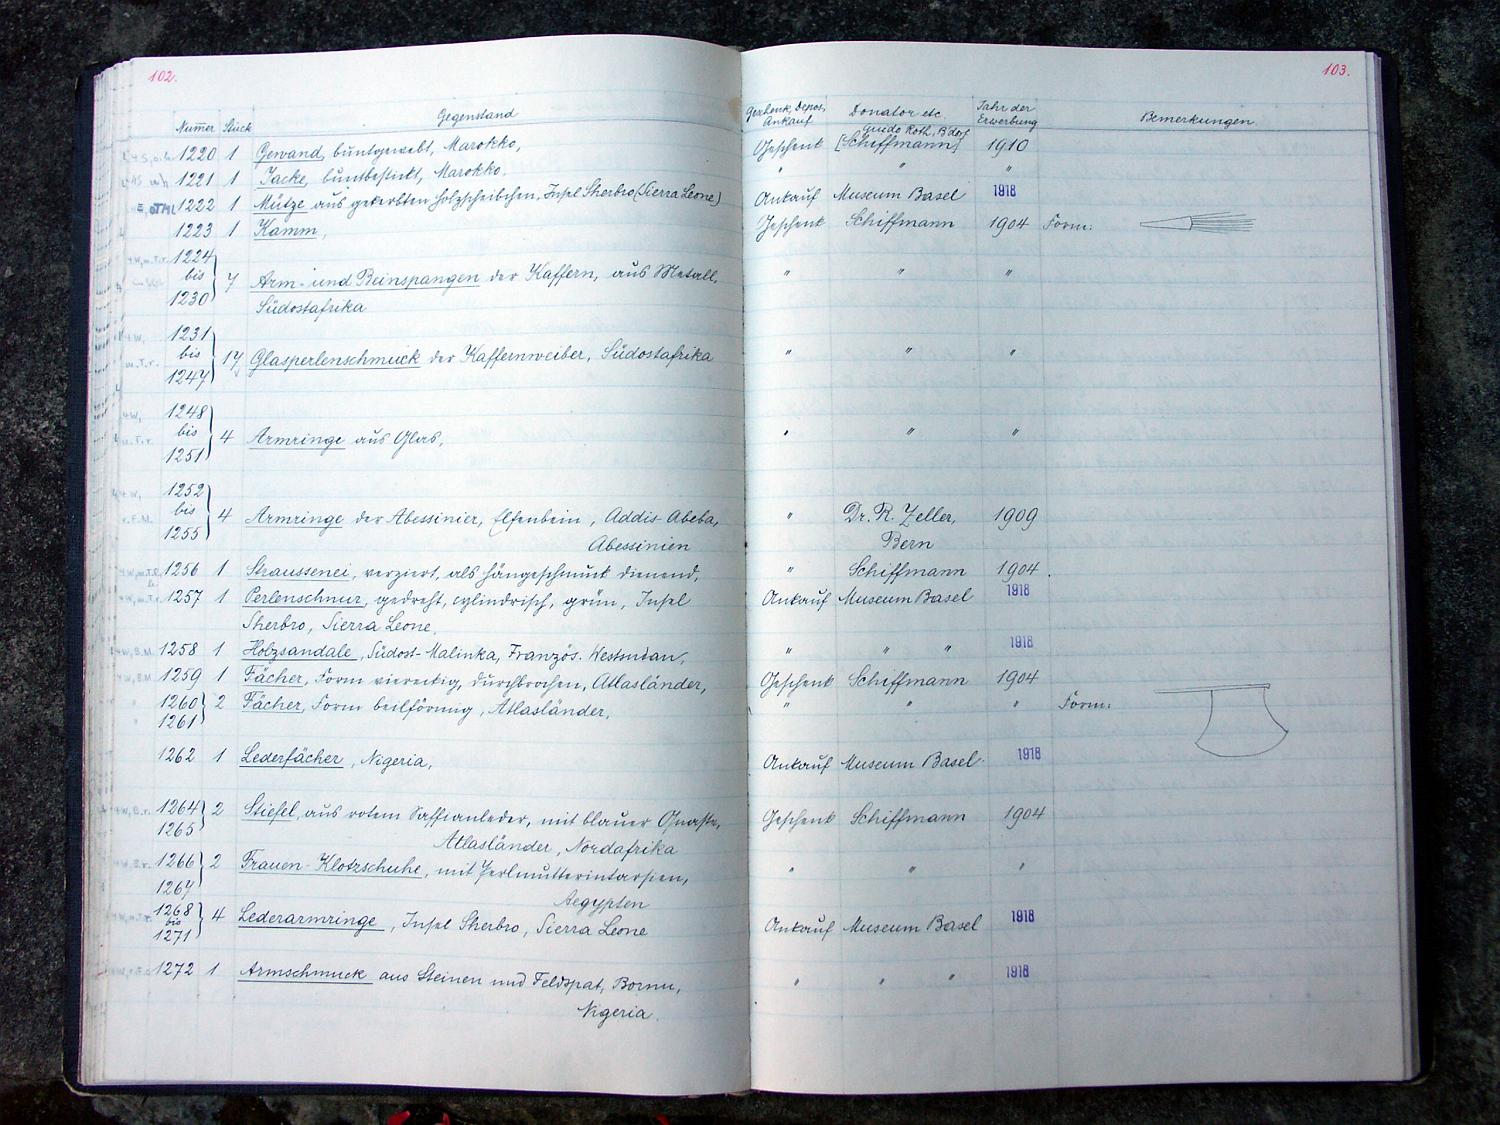 102.
103.
Numer Stück Gegenstand Geschenk, Depos, Ankauf Donator etc. Jahr der Erwerbung Bemerkungen.
Guido Roth, B'dorf
1220 1 Gewand, buntgewebt, Marokko, Geschenk [Schiffmann] 1910
1221 1 Jacke, buntbestickt, Marokko. " " "
1222 1 Mütze aus gekerbten Holzscheibchen, Insel Sherbro (Sierra Leone) Ankauf Museum Basel 1918
1223 1 Kamm, Geschenk Schiffmann 1904 Form:
1224
bis 7 Arm- und Beinspangen der Kaffern, aus Metall, " " "
1230 Südostafrika
1231
bis 17 Glasperlenschmuck der Kaffernweiber, Südostafrika " " "
1247
1248
bis 4 Armringe aus Glas, " " "
1251
1252
bis 4 Armringe der Abessinier, Elfenbein, Addis-Abeba, " Dr. R. Zeller, 1909
1255 Abessinien Bern
1256 1 Straussenei, verziert, als Hängeschmuck dienend, " Schiffmann 1904.
1257 1 Perlenschnur, gedreht, cylindrisch, grün, Insel Ankauf Museum Basel 1918
Sherbro, Sierra Leone.
1258 1 Holzsandale, Südost-Malinka, Französ. Westsudan, " " " 1918
1259 1 Fächer, Form viereckig, durchbrochen, Atlasländer, Geschenk Schiffmann 1904
1260 2 Fächer, Form beilförmig, Atlasländer, " " " Form:
1261
1262 1 Lederfächer, Nigeria, Ankauf Museum Basel. 1918
1264 2 Stiefel, aus rotem Saffianleder, mit blauer Quaste, Geschenk Schiffmann 1904
1265 Atlasländer, Nordafrika
1266 2 Frauen-Klotzschuhe, mit Perlmutterintarsien, " " "
1267 Aegypten
1268
bis 4 Lederarmringe, Insel Sherbro, Sierra Leone Ankauf Museum Basel 1918
1271
1272 1 Armschmuck aus Steinen und Feldspat, Bornu, " " " 1918
Nigeria.